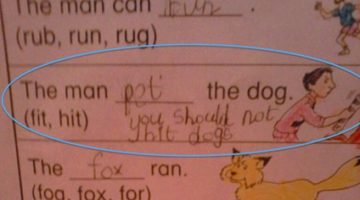 The man can run .
(rub, run, rug)
The man pot the dog.
(fit, hit) you should not
hit dogs
The fox ran.
(fog, fox, for)